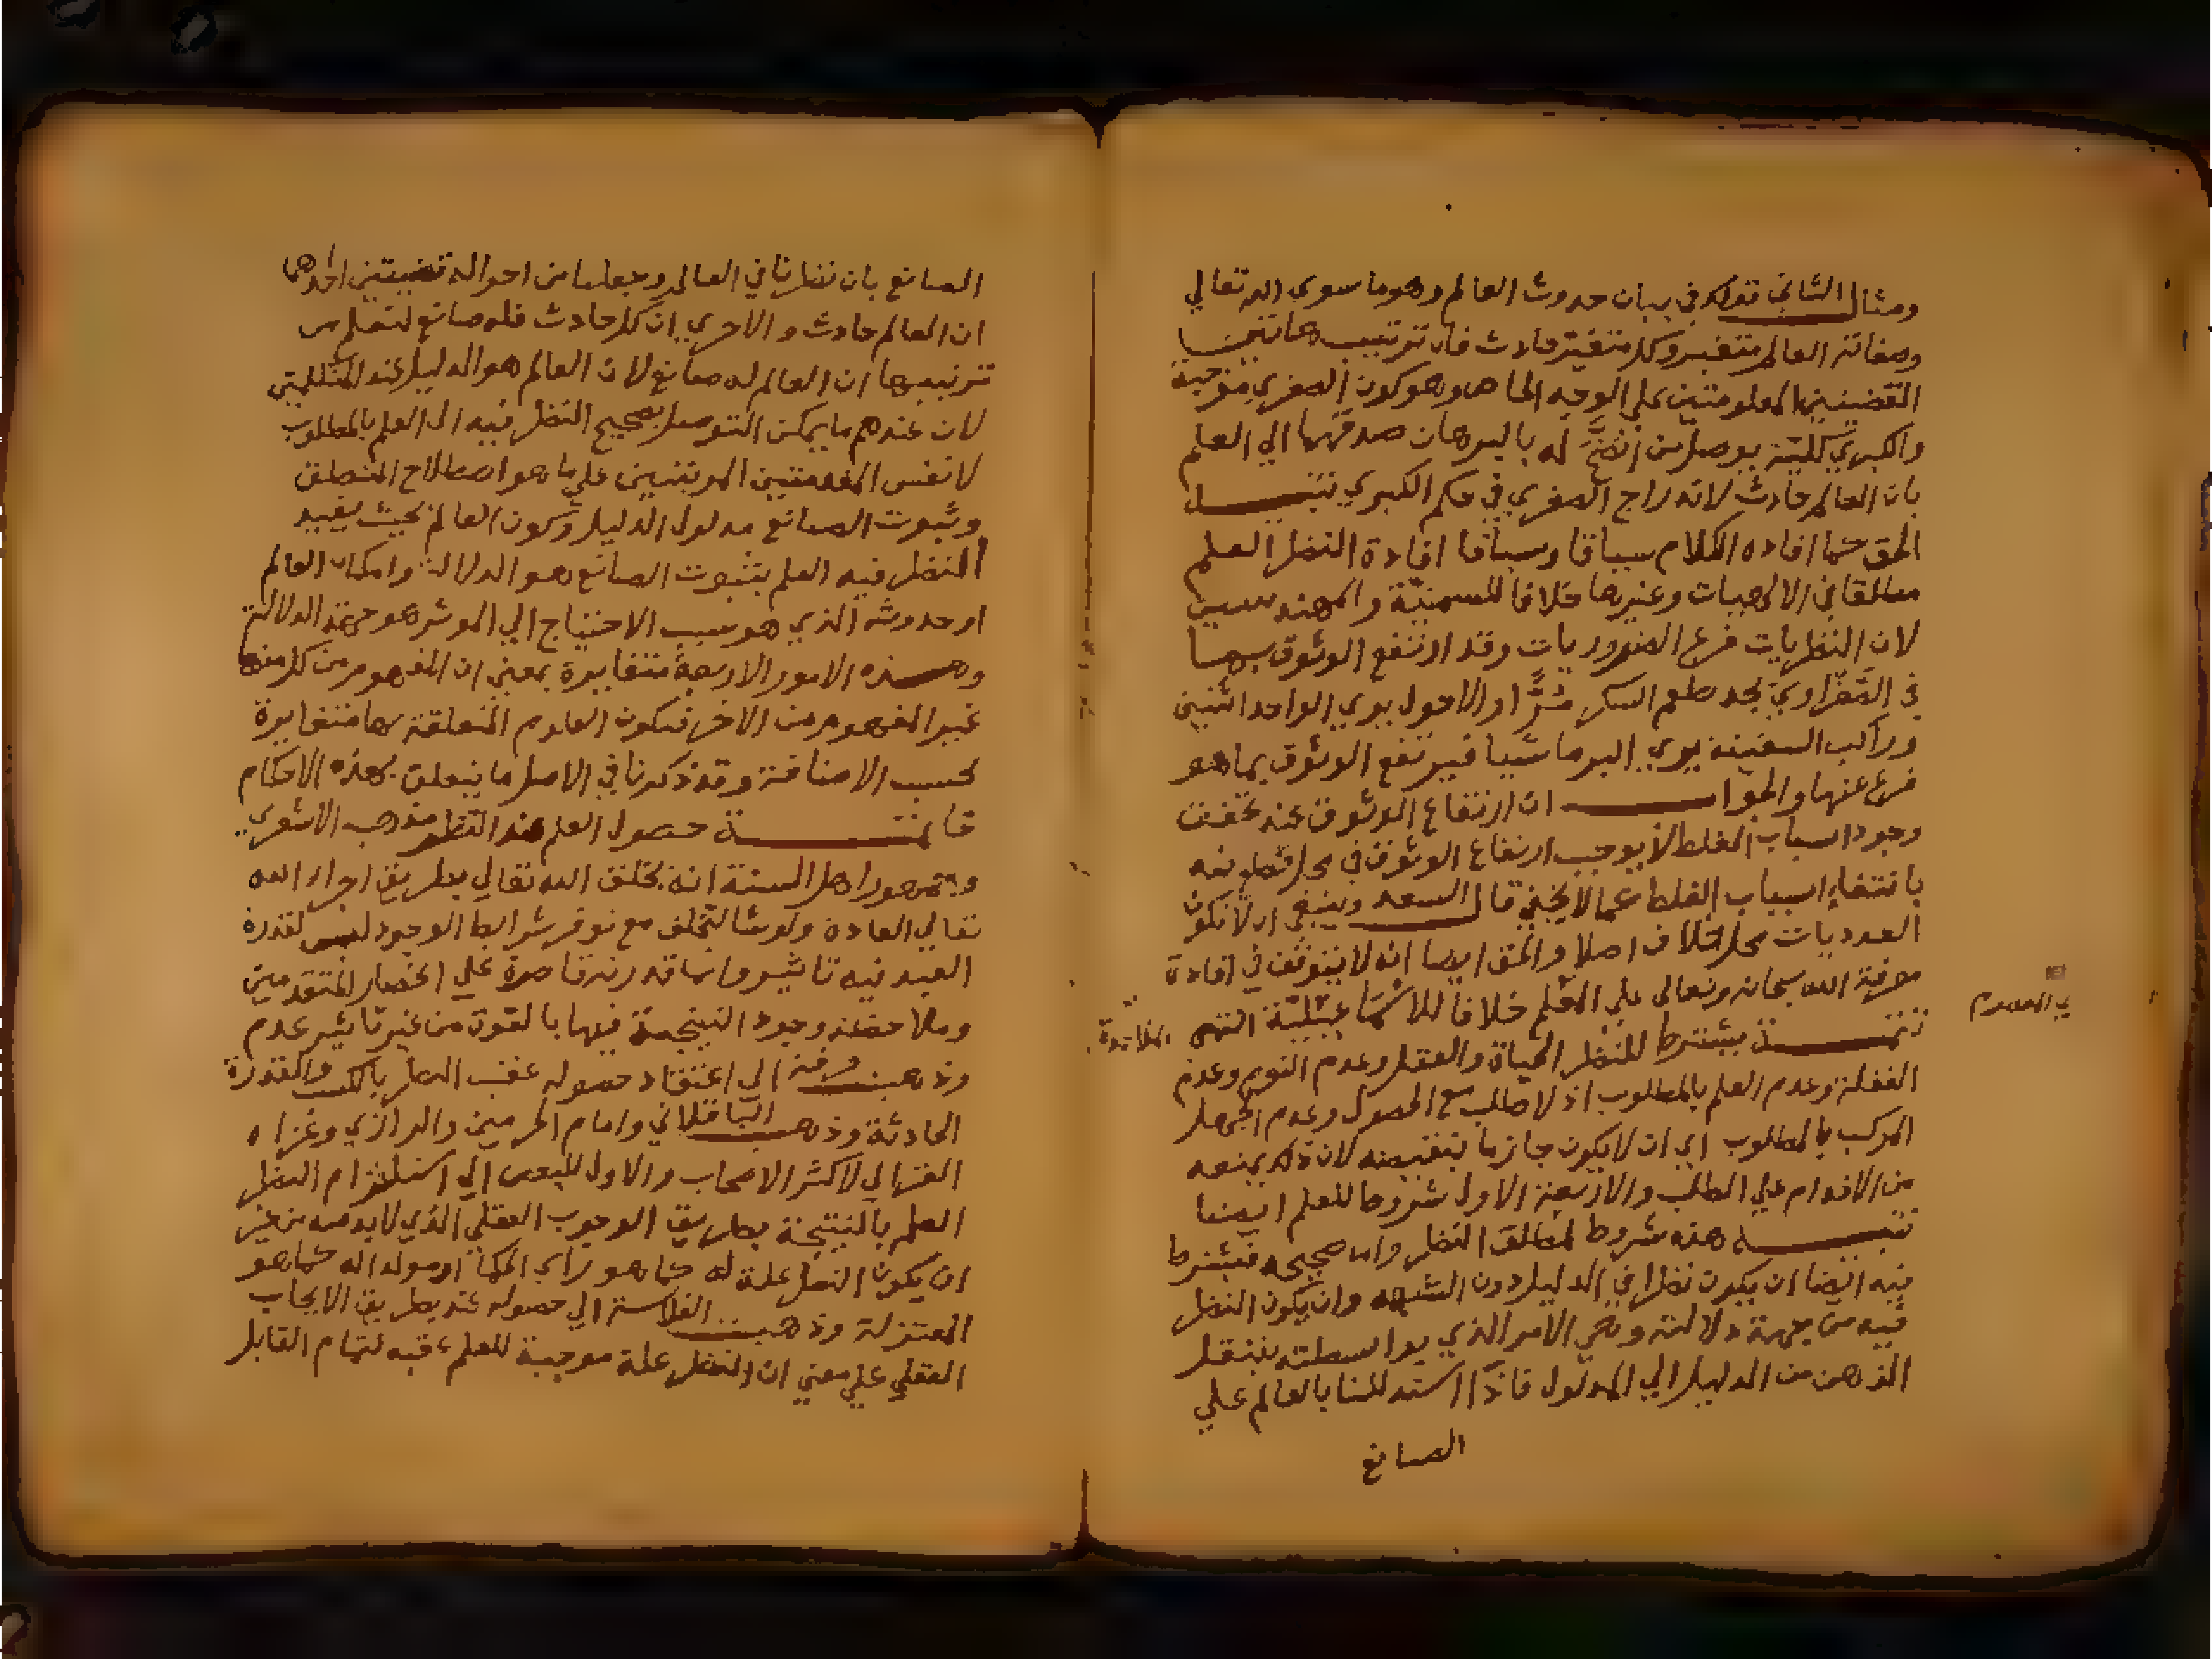 ومثال الثاني قولك في بيان حدوث العالم وهو ما سوى الله تعالي
وصفاته العالم متغير وكل متغير حادث فان ترتيب هاتين
القضيتين المعلومتين علي الوجه الخاص وهو كون الصغري موجبة
والكبري كلية يوصل من اتضح له بالبرهان صدقهما الي العلم
بان العالم حادث لاندراج الصغري في حكم الكبري تنبيه
الحق كما افاده الكلام سباقا وسياقا افادة النظر العلم
مطلقا في الالهيات وغيرها خلافا للسمنية والمهندسين
لان النظريات فرع الضروريات وقد ارتفع الوثوق بها
في الصفراوي يجد طعم السكر مرًّا او الاحول يري الواحد اثنين
وراكب السفينة يري البر ماشيا فيرتفع الوثوق بما هو
فرع عنها والجواب ان ارتفاع الوثوق عند تحقق
وجود اسباب الغلط لا يوجب ارتفاع الوثوق في محل قطع فيه
بانتفاء اسباب الغلط كما لا يخفي قال السعد وينبغي ان لا تكون
العدديات محل خلاف اصلا والحق ايضا انه لا يتوقف في افادة
معرفة الله سبحانه وتعالى علي المعلم خلافا للاسماعيلية انتهى
الملاحدة
ي المعدوم
تتمة يشترط للنظر الحياة والعقل وعدم النوم وعدم
الغفلة وعدم العلم بالمطلوب اذ لا طلب مع الحصول وعدم الجهل
المركب بالمطلوب اي ان لا يكون جازما بنقيضه لان ذلك يمنعه
من الاقدام علي الطلب والاربعة الاول شروط للعلم ايضا
تنبيه هذه شروط لمطلق النظر واما صحيحه فيشترط
فيه ايضا ان يكون نظرا في الدليل دون الشبهه وان يكون النظر
فيه من جهة دلالته وهي الامر الذي بواسطته ينتقل
الذهن من الدليل الي المدلول فاذا استدللنا بالعالم علي
الصانع
الصانع بان نظرنا في العالم وجعلنا من احواله قضيتين احدهما
ان العالم حادث والاخري ان كل حادث فله صانع لنعلم من
ترتيبها ان العالم له صانع لان العالم هو الدليل عند المتكلمين
لان عندهم ما يمكن التوصل بصحيح النظر فيه الى العلم بالمطلوب
لا نفس المقدمتين المرتبتين علي ما هو اصطلاح المنطق
وثبوت الصانع مدلول الدليل وكون العالم بحيث يفيد
النظر فيه العلم بثبوت الصانع هو الدلالة وامكان العالم
او حدوثه الذي هو سبب الاحتياج الي الموثر هو جهة الدلالة
وهذه الامور الاربعة متغايرة بمعني ان المفهوم من كل منها
غير المفهوم من الاخر فتكون العلوم المتعلقة بها متغايرة
بحسب الاضافة وقد ذكرنا في الاصل ما يتعلق بهذه الاحكام
خاتمة حصول العلم عند النظر مذهب الاشعري
وجمهور اهل السنة انه بخلق الله تعالي بطريق اجراء الله
تعالي العادة ولو شا لتخلف مع توفر شرايط الوجود ليس لقدرة
العبد فيه تاثير وانما قدرته قاصرة علي احضار المتقدمين
وملاحظة وجود النتيجة فيها بالقوة من غير تاثير عدم
وذهبت فرقة الي اعتقاد حصوله عقب النظر بالكسب والقدرة
الحادثة وذهب الباقلاني وامام الحرمين والرازي وعزاه
الغزالي لاكثر الاصحاب والاول للبعض الي استلزام النظر
العلم بالنتيجة بطريق الوجوب العقلي الذي لا بد منه من غير
ان يكون النظر علة له كما هو راي الحكما او مولدا له كما هو
المعتزلة وذهبت الفلاسة الي حصوله عنه بطريق الايجاب
العقلي علي معني ان النظر علة موجبة للعلم عقبه لتمام القابل